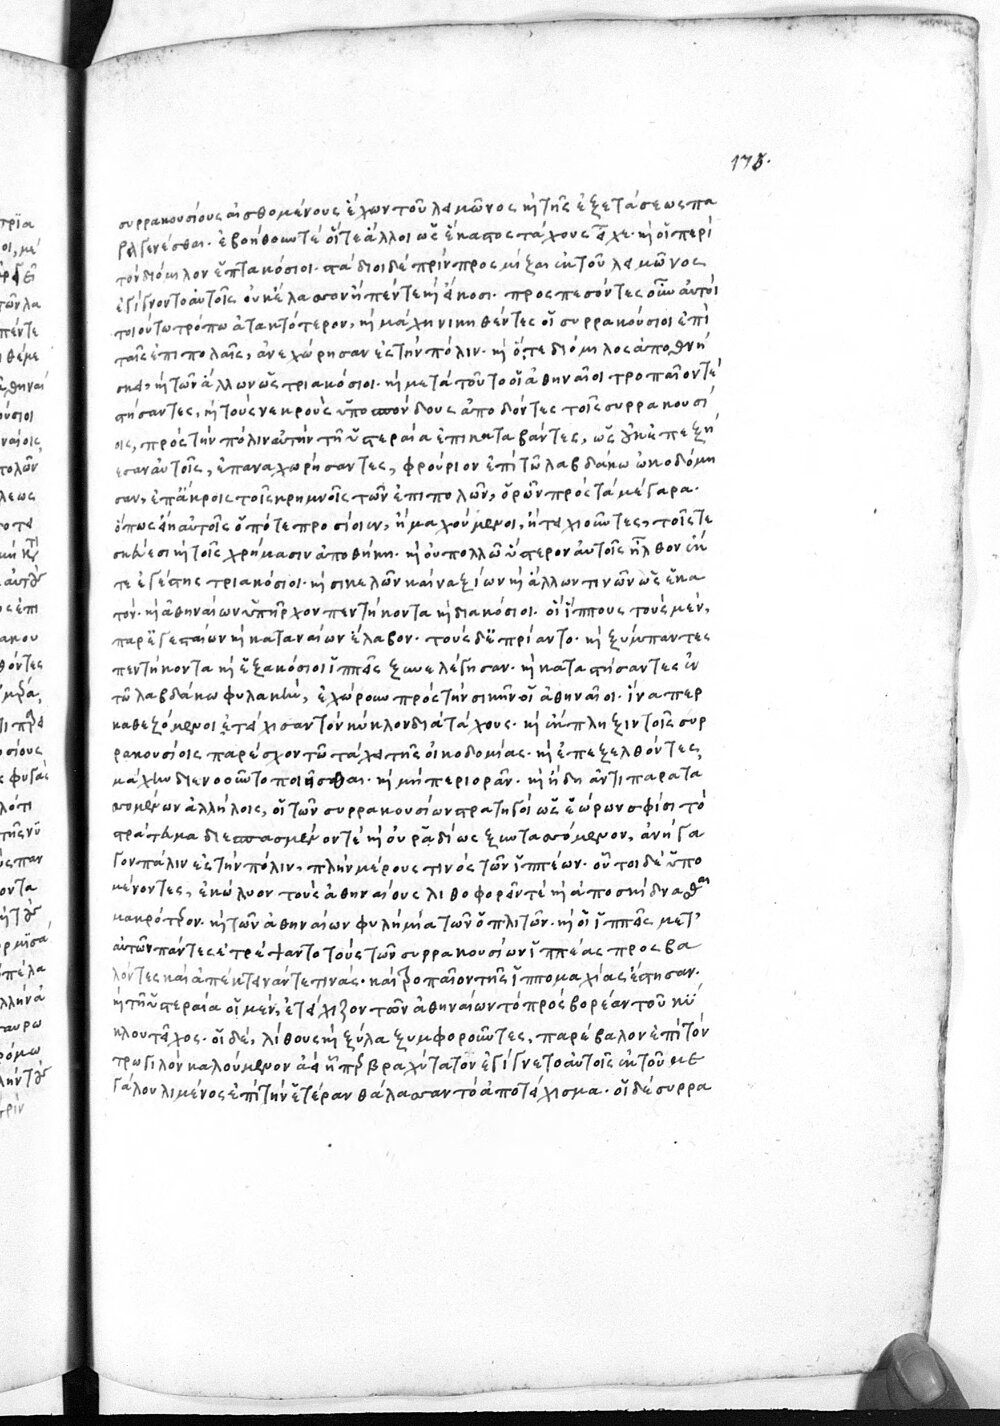 175.
συρρακουσίους αἰσθομένους ἐκ τοῦ λειμῶνος καὶ τῆς ἐξετάσεως πα
ραγενέσθαι. ἐβοήθουν τὲ οἵ τε ἄλλοι ὡς ἕκαστος τάχους εἶχε. καὶ οἱ περὶ
τὸν διόμιλον ἑπτακόσιοι. στάδιοι δὲ πρὶν προσμίξαι ἐκ τοῦ λειμῶνος
ἐγίγνοντο αὐτοῖς οὐκ ἔλασσον ἢ πέντε καὶ εἴκοσι. προσπεσόντες οὖν αὐτοὶ
τοιούτω τρόπω ἀτακτότερον, καὶ μάχη νικηθέντες οἱ συρρακούσιοι ἐπὶ
ταῖς ἐπιπολαῖς, ἀνεχώρησαν ἐς τὴν πόλιν. καὶ ὅ, τε διόμιλος ἀποθνή
σκει, καὶ τῶν ἄλλων ὡς τριακόσιοι. καὶ μετὰ τοῦτο οἱ ἀθηναῖοι τροπαῖον τὲ
στήσαντες, καὶ τοὺς νεκροὺς ὑποσπόνδους ἀποδόντες τοῖς συρρακουσί
οις, πρὸς τὴν πόλιν αὐτὴν τῆ ὑστεραία ἐπικαταβάντες, ὡς οὐκ ἐπεξή
εσαν αὐτοῖς, ἐπαναχωρήσαντες, φρούριον ἐπὶ τῶ λαβδάκω ὠκοδόμη
σαν, ἐπ' ἄκροις τοῖς κρημνοῖς τῶν ἐπιπολῶν, ὁρῶν πρὸς τὰ μέγαρα.
ὅπως εἴη αὐτοῖς ὁπότε προσίοιεν, ἢ μαχούμενοι, ἢ τειχιοῦντες, τοῖς τε
σκεύεσι καὶ τοῖς χρήμασιν ἀποθήκη. καὶ οὐ πολλῶ ὕστερον αὐτοῖς ἦλθον ἐκ
τε ἐγέστης τριακόσιοι. καὶ σικελῶν καὶ ναξίων καὶ ἄλλων τινῶν ὡς ἑκα
τόν. καὶ ἀθηναίων ὑπῆρχον πεντήκοντα καὶ διακόσιοι. οἷς ἵππους τοὺς μὲν,
παρ' ἐγεσταίων καὶ καταναίων ἔλαβον. τοὺς δ' ἐπρίαντο. καὶ ξύμπαντες
πεντήκοντα καὶ ἑξακόσιοι ἱππεῖς ξυνελέγησαν. καὶ καταστήσαντες ἐν
τῶ λαβδάκω φυλακὴν, ἐχώρουν πρὸς τὴν σικῆν οἱ ἀθηναῖοι. ἵνα περ
καθεζόμενοι ἐτείχισαν τὸν κύκλον διὰ τάχους. καὶ ἔκπληξιν τοῖς συρ
ρακουσίοις παρέσχον τῶ τάχει τῆς οἰκοδομίας. καὶ ἐπεξελθόντες,
μάχην διενοοῦντο ποιεῖσθαι. καὶ μὴ περιορᾶν. καὶ ἤδη ἀντιπαρατα
σσομένων ἀλλήλοις, οἱ τῶν συρρακουσίων στρατηγοὶ ὡς ἑώρων σφίσι τὸ
στράτευμα διεσπασμένον τὲ καὶ οὐ ῥαδίως ξυντασσόμενον, ἀνήγα
γον πάλιν ἐς τὴν πόλιν, πλὴν μέρους τινὸς τῶν ἱππέων. οὗτοι δὲ ὑπο
μένοντες, ἐκώλυον τοὺς ἀθηναίους λιθοφορεῖν τὲ καὶ ἀποσκίδνασθαι
μακρότερον. καὶ τῶν ἀθηναίων φυλὴ μία τῶν ὁπλιτῶν. καὶ οἱ ἱππεῖς μετ'
αὐτῶν πάντες ἐτρέψαντο τοὺς τῶν συρρακουσίων ἱππέας προσβα
λόντες καὶ ἀπέκτεινάν τε τινας. καὶ τροπαῖον τῆς ἱππομαχίας ἔστησαν.
καὶ τῆ ὑστεραία οἱ μὲν, ἐτείχιζον τῶν ἀθηναίων τὸ πρὸς βορέαν τοῦ κύ
κλου τεῖχος. οἱ δὲ, λίθους καὶ ξύλα ξυμφοροῦντες, παρέβαλον ἐπὶ τὸν
τρωγιλὸν καλούμενον ἀεὶ ἧπερ βραχύτατον ἐγίγνετο αὐτοῖς ἐκ τοῦ με
γάλου λιμένος ἐπὶ τὴν ἑτέραν θάλασσαν τὸ ἀποτείχισμα. οἱ δὲ συρρα